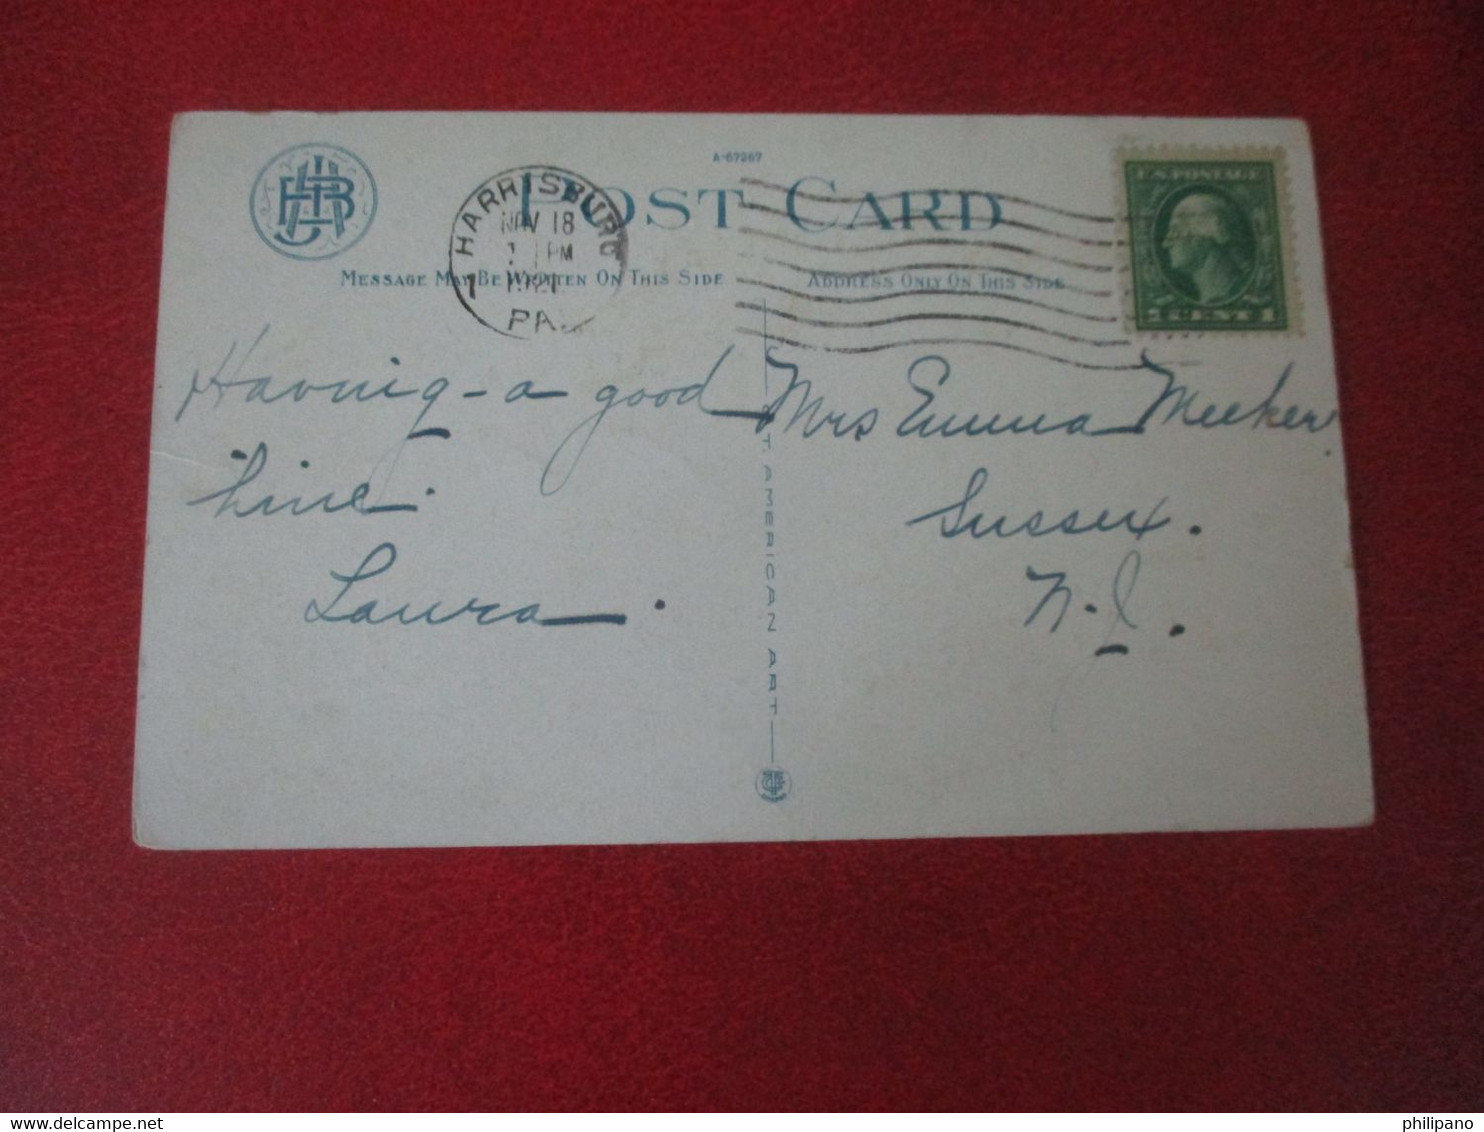 A-67267
POST CARD
HARRISBURG
NOV 18
PM
1921
PA.
1
U.S. POSTAGE
1 CENT 1
MESSAGE MAY BE WRITTEN ON THIS SIDE
ADDRESS ONLY ON THIS SIDE
Having a good
time.
Laura.
AMERICAN ART
Mrs Emma Meeker
Sussex.
N.J.
philipano